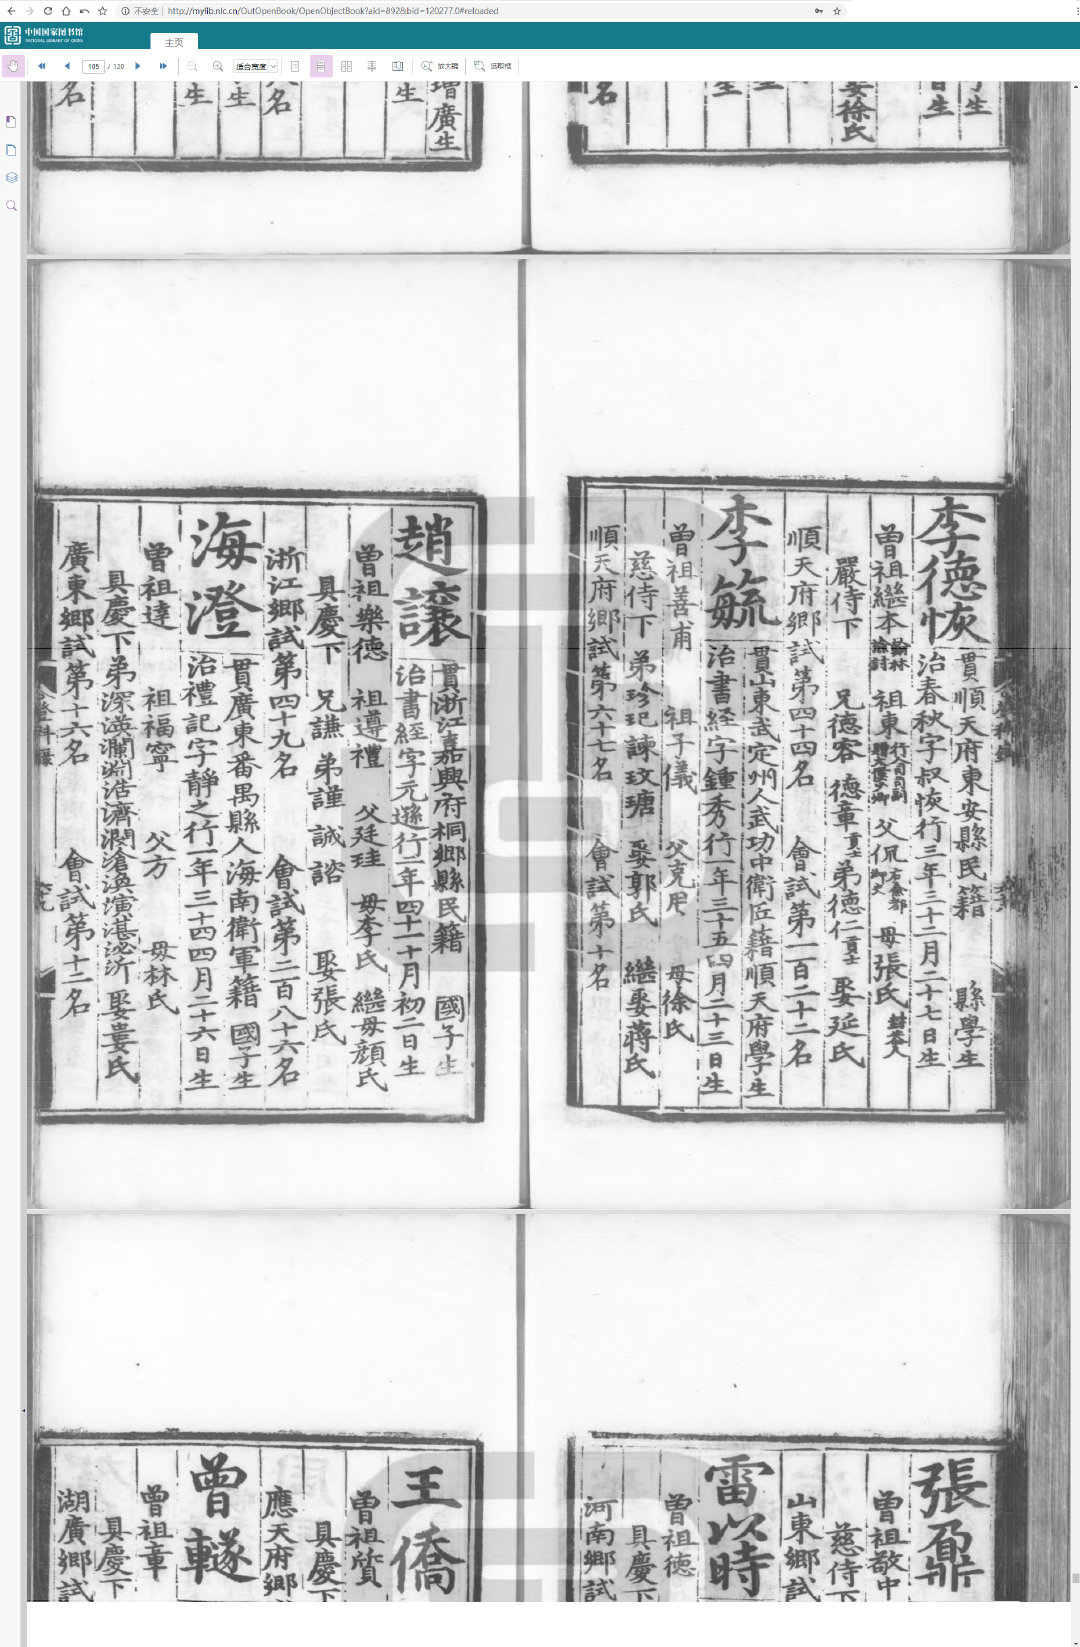 不安全 http://mylib.nlc.cn/OutOpenBook/OpenObjectBook?aid=892&bid=120277.0#reloaded
中国国家图书馆
NATIONAL LIBRARY OF CHINA
主页
105 / 120
适合宽度
放大镜
选取框
生
日生
娶徐氏
生
生
名
增廣生
生
名
生
生
名
李德恢
貫順天府東安縣民籍 縣學生
治春秋字叔恢行三年三十二月二十七日生
曾祖繼本 祖東 父侃 母張氏
嚴侍下 兄德容 德章 弟德仁 娶延氏
順天府鄉試第四十四名 會試第一百二十二名
李毓
貫山東武定州人武功中衛匠籍順天府學生
治書經字鍾秀行一年三十五四月二十三日生
曾祖善甫 祖子儀 父克用 母徐氏
慈侍下 弟珍 玘 諫 玟 瑭 娶郭氏 繼娶蔣氏
順天府鄉試第六十七名 會試第十名
趙讓
貫浙江嘉興府桐鄉縣民籍 國子生
治書經字元遜行二年四十一十月初二日生
曾祖樂德 祖遵禮 父廷珪 母李氏 繼母顏氏
具慶下 兄讌 弟謹 誠 諮 娶張氏
浙江鄉試第四十九名 會試第二百八十六名
海澄
貫廣東番禺縣人海南衛軍籍 國子生
治禮記字靜之行一年三十四四月二十六日生
曾祖達 祖福寧 父方 母林氏
具慶下 弟深 渶 瀾 淵 浩 濟 潤 滄 渙 濱 湛 泌 沂 娶婁氏
廣東鄉試第十六名 會試第十二名
張鼐
曾祖敬中
慈侍下
山東鄉試
雷以時
曾祖德
具慶下
河南鄉試
王僑
曾祖質
具慶下
應天府鄉
曾轍
曾祖章
具慶下
湖廣鄉試